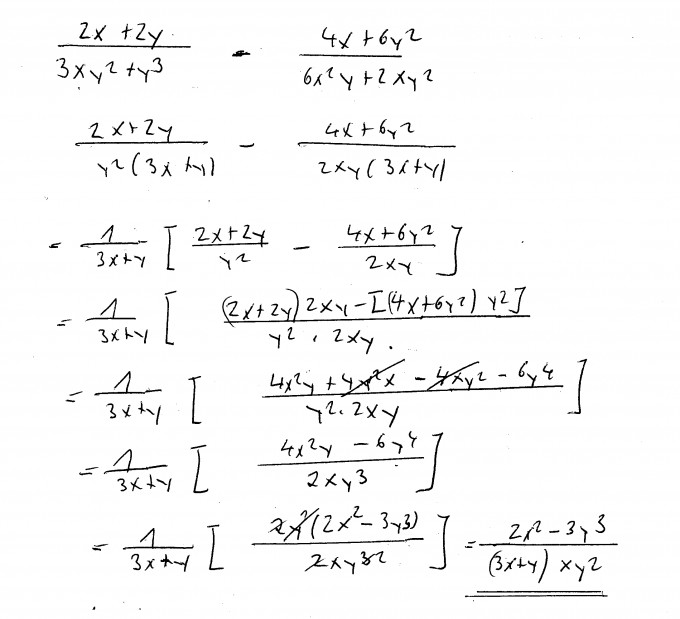 (2x + 2y)/(3xy² + y³) - (4x + 6y²)/(6x²y + 2xy²)
(2x + 2y)/(y²(3x + y)) - (4x + 6y²)/(2xy(3x + y))
= 1/(3x+y) [ (2x+2y)/y² - (4x+6y²)/(2xy) ]
= 1/(3x+y) [ ((2x+2y)2xy - [(4x+6y²)y²])/(y² · 2xy)
= 1/(3x+y) [ (4x²y + 4y²x - 4xy² - 6y⁴)/(y² · 2xy) ]
= 1/(3x+y) [ (4x²y - 6y⁴)/(2xy³) ]
= 1/(3x+y) [ 2y(2x² - 3y³)/(2xy³²) ] = (2x² - 3y³)/((3x+y) xy²)